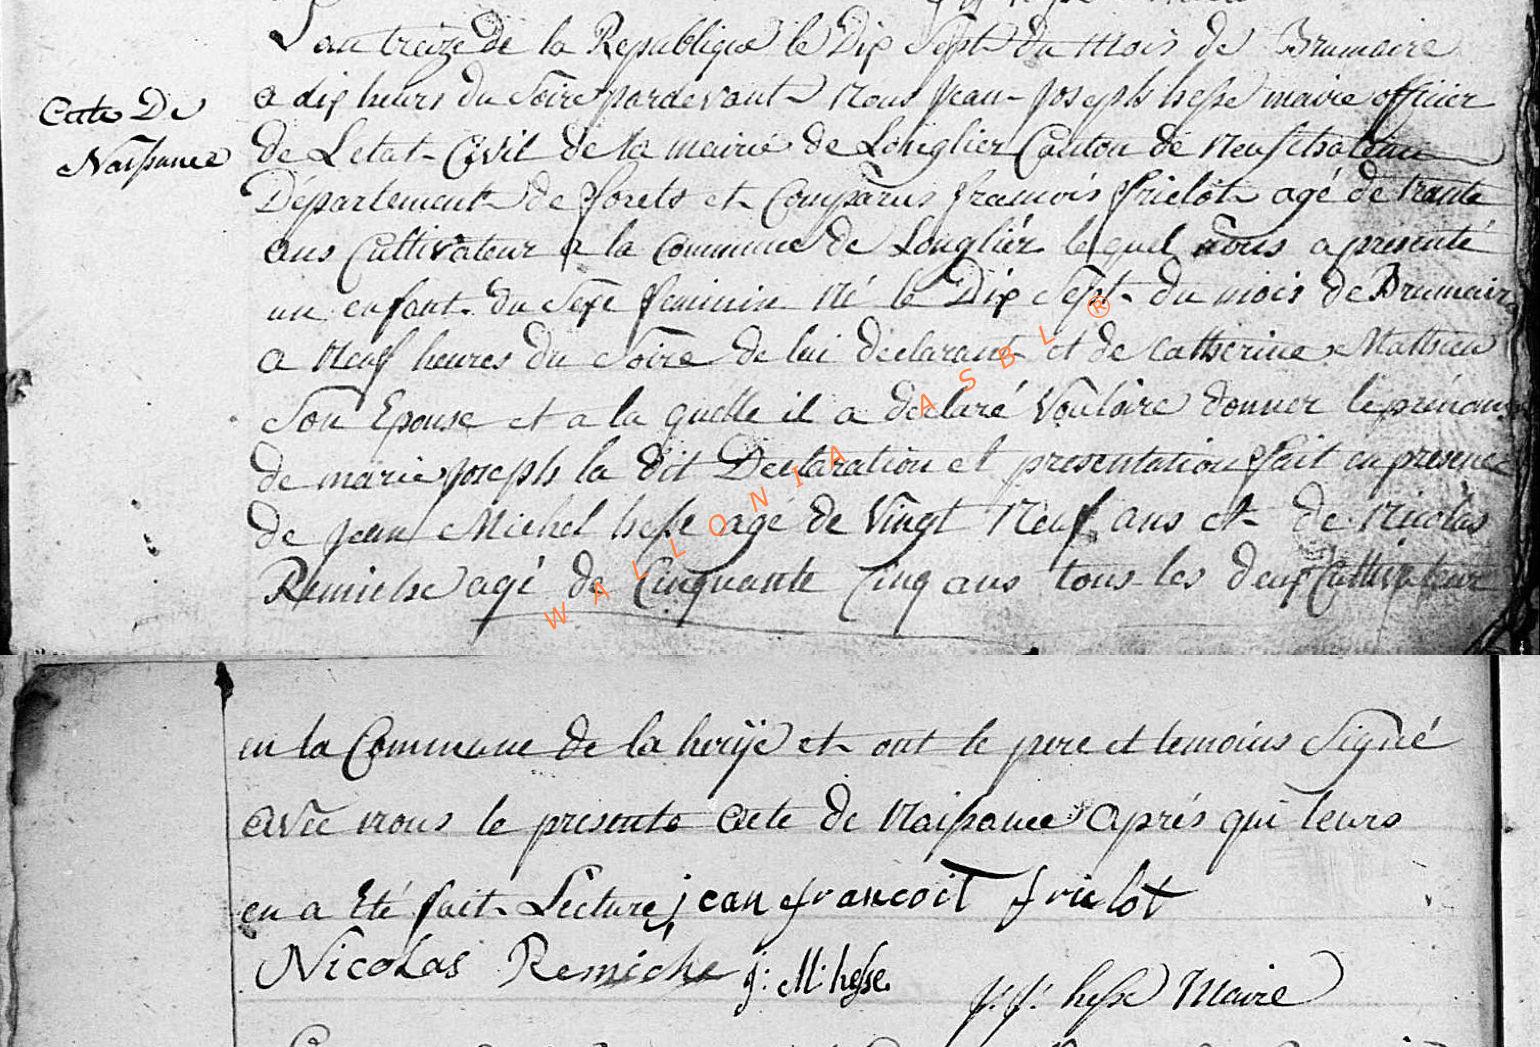 L'an treize de la Republique le Dix Sept du Mois de Brumaire
Acte De
Naissance
a dix heurs du Soire pardevant Nous Jean Joseph hesse maire officier
de Letat Civil de la mairie de Longlier Canton de Neufchateau
Departement de forets et Comparus francois frielot agé de trante
ans Cultivateur a la Commune de Longlier le quel nous a presenté
un enfant du Sexe feminin Né le Dix Sept du mois de Brumaire
a Neuf heures du Soire de lui declarant et de Catherine Mathieu
Son Epouse et a la quelle il a declaré Vouloire donner le prenom
de marie joseph la dit Declaration et presentation fait en presence
de jean Michel hesse agé de Vingt Neuf ans et de Nicolas
Remiche agé de Cinquante Cinq ans tous les deux Cultivateur
WALLONIA ASBL ®
en la Commune de la herije et ont le pere et temoins Signé
avec nous le presente acte de Naissance aprés qui leurs
en a Eté fait Lecture jean francoit frielot
Nicolas Remiche j: M: hesse j: j: hesse Maire